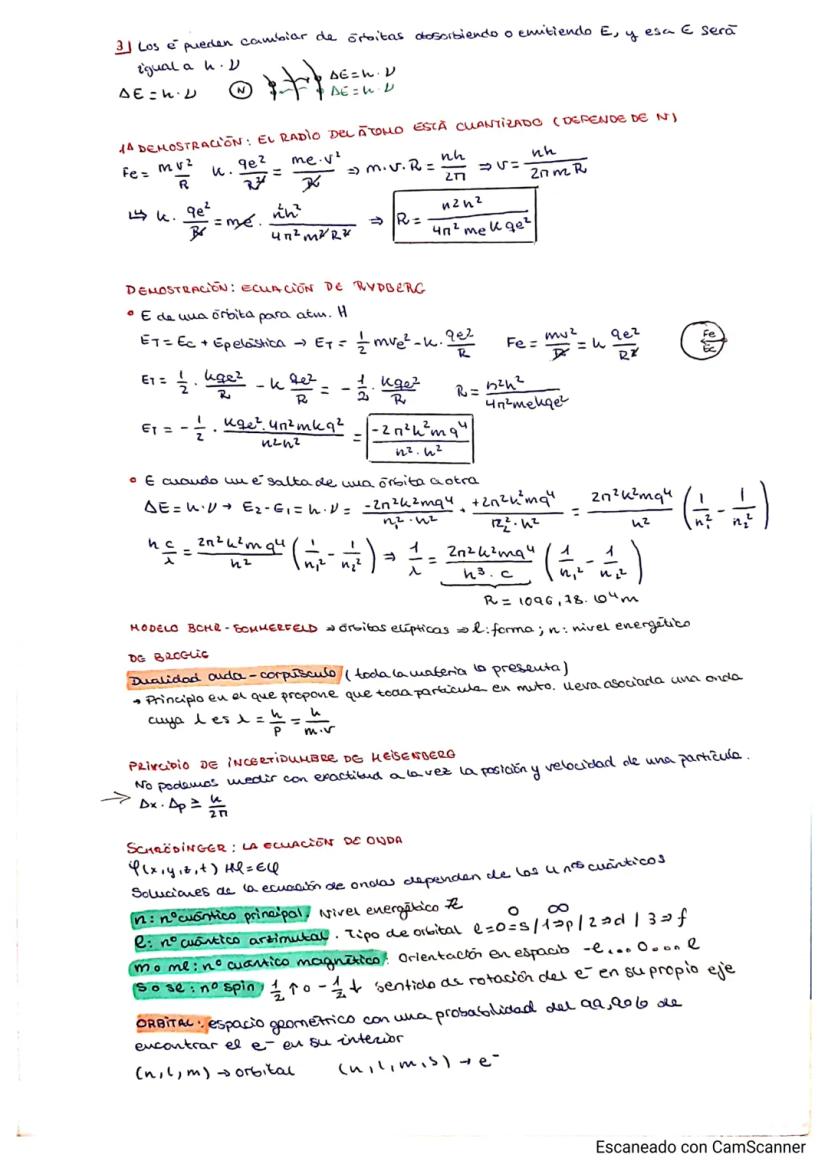 3) Los e⁻ pueden cambiar de órbitas absorbiendo o emitiendo E, y esa E será
igual a h·ν
ΔE = h·ν  N  ΔE = h·ν
ΔE = h·ν
1ª DEMOSTRACIÓN: EL RADIO DEL ÁTOMO ESTÁ CUANTIZADO (DEPENDE DE N)
Fe = mv²/R  k · qe²/R² = me·v²/R ⇒ m·v·R = nh/2π ⇒ v = nh/2πmR
↳ k · qe²/R = me · n²h²/4π²m²R² ⇒ R = n²h²/4π² me k qe²
DEMOSTRACIÓN: ECUACIÓN DE RYDBERG
• E de una órbita para atm. H
ET = Ec + Epelástica → ET = 1/2 mve² - k· qe²/R  Fe = mv²/R = k qe²/R²  Fe Ec
ET = 1/2 · kqe²/R - k qe²/R = - 1/2 · kqe²/R  R = n²h²/4π²mekqe²
ET = - 1/2 · kqe²·4π²mkq²/n²h² = -2π²k²mq⁴/n²·h²
• E cuando un e⁻ salta de una órbita a otra
ΔE = h·ν → E₂-E₁ = h·ν = -2π²k²mq⁴/n₁²·h² + +2π²k²mq⁴/n₂²·h² = 2π²k²mq⁴/h² (1/n₁² - 1/n₂²)
h c/λ = 2π²k²mq⁴/h² (1/n₁² - 1/n₂²) ⇒ 1/λ = 2π²k²mq⁴/h³·c (1/n₁² - 1/n₂²)
R = 1096,78·10⁴m
MODELO BOHR-SOMMERFELD ⇒ órbitas elípticas ⇒ l: forma; n: nivel energético
DE BROGLIE
Dualidad onda-corpúsculo (toda la materia la presenta)
→ Principio en el que propone que toda partícula en mvto. lleva asociada una onda
cuya λ es λ = h/p = h/m·v
PRINCIPIO DE INCERTIDUMBRE DE HEISENBERG
No podemos medir con exactitud a la vez la posición y velocidad de una partícula.
→ Δx·Δp ≥ h/2π
SCHRÖDINGER: LA ECUACIÓN DE ONDA
φ(x,y,z,t) Hφ=Eφ
Soluciones de la ecuación de ondas dependen de los 4 nos cuánticos
n: nº cuántico principal. Nivel energético
l: nº cuántico azimutal. Tipo de orbital l=0=s/1⇒p/2⇒d/3⇒f
m o ml: nº cuántico magnético: Orientación en espacio -l...0...l
s o se: nº spin, 1/2 ↑ o -1/2 ↓ sentido de rotación del e⁻ en su propio eje
ORBITAL: espacio geométrico con una probabilidad del 99,90% de
encontrar el e⁻ en su interior
(n,l,m) → orbital  (n,l,m,s) → e⁻
Escaneado con CamScanner